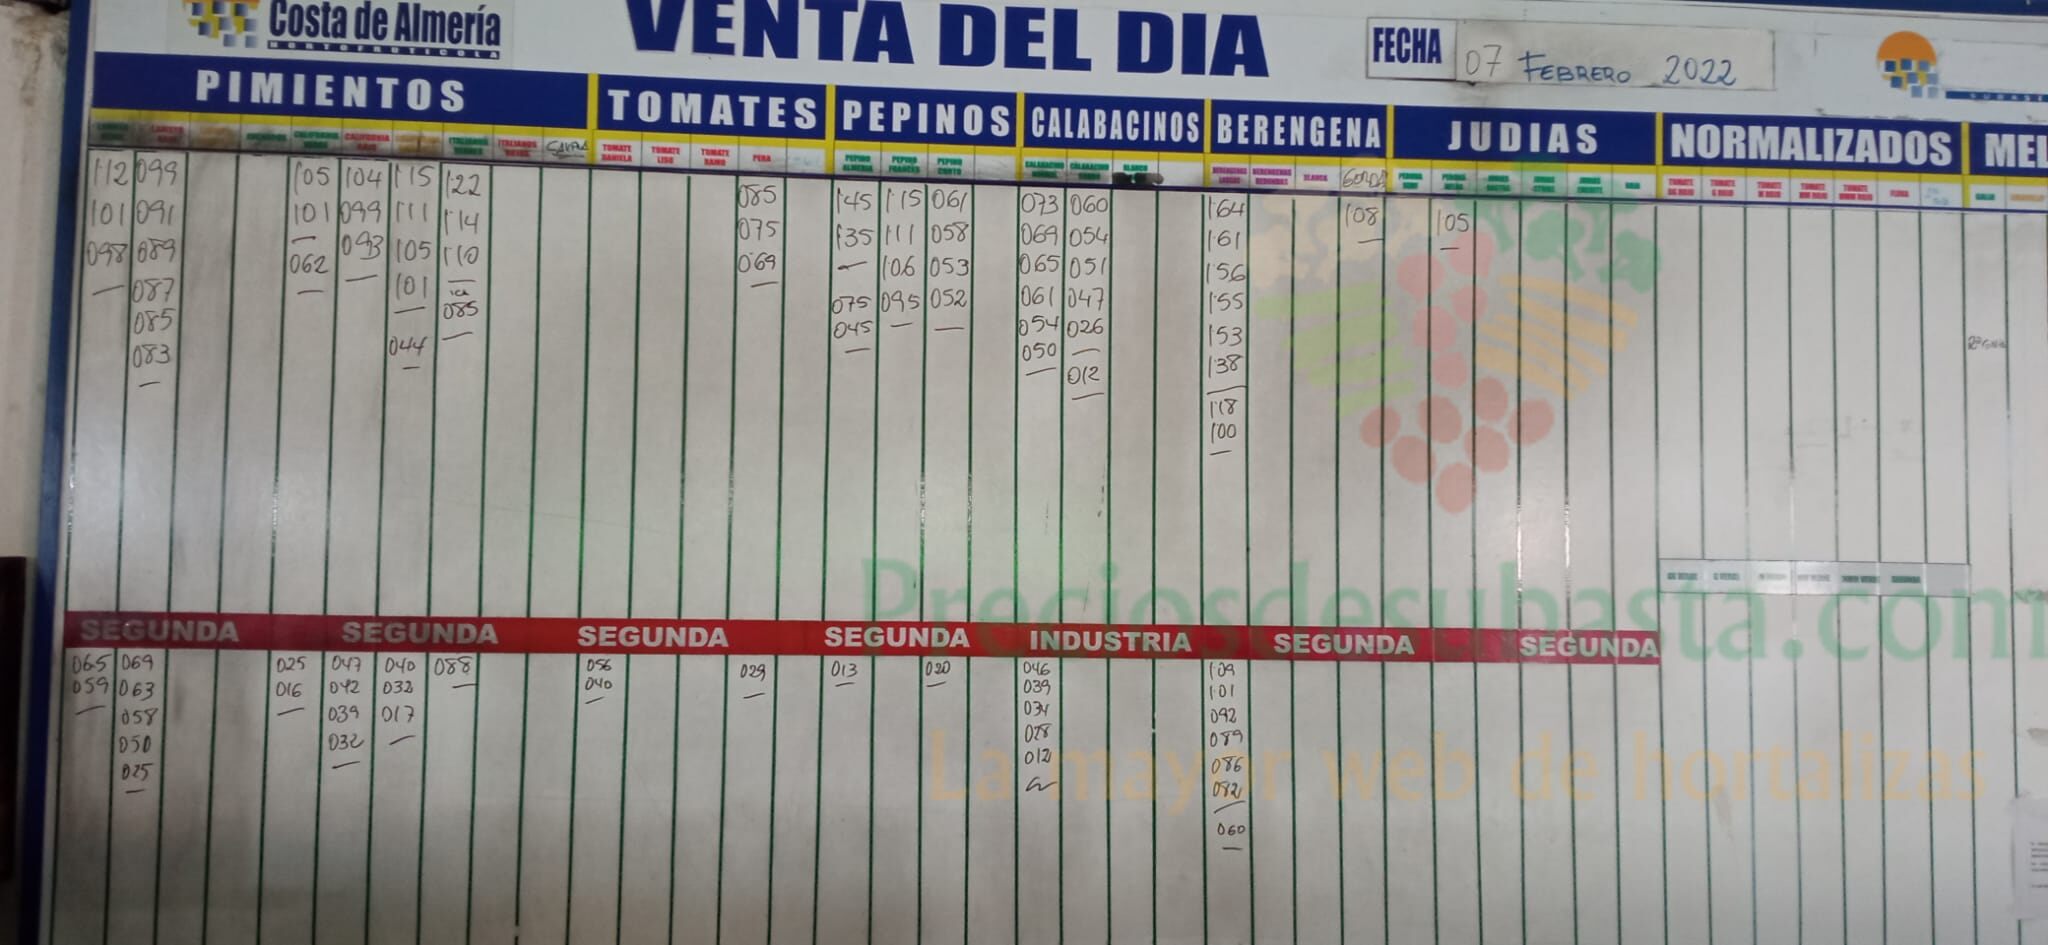 Costa de Almería
HORTOFRUTICOLA
VENTA DEL DIA
FECHA 07 FEBRERO 2022
PIMIENTOS TOMATES PEPINOS CALABACINOS BERENGENA JUDIAS NORMALIZADOS MEL
CALIFORNIA TOMATE DANIELA TOMATE LISO TOMATE RAMO PERA PEPINO ALMERIA PEPINO FRANCES PEPINO CORTO BLANCO BLANCA GORDA
1'12 099 1'05 1'04 1'15 1'22 085 1'45 1'15 061 073 060 1'64 1'08 1'05
101 091 101 099 1'11 1'14 075 1'35 1'11 058 069 054 1'61
098 089 062 093 105 1'10 069 106 053 065 051 1'56
087 101 085 075 095 052 061 047 1'55
085 044 045 054 026 1'53
083 050 012 1'38
1'18
1'00
SEGUNDA SEGUNDA SEGUNDA SEGUNDA INDUSTRIA SEGUNDA SEGUNDA
065 069 025 047 040 088 056 029 013 020 046 1'09
059 063 016 042 032 040 039 1'01
058 039 017 034 092
050 032 028 089
025 012 086
082
060
Preciosdesubasta.com
La mayor web de hortalizas